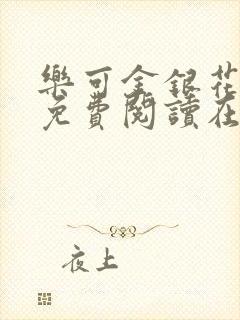 樂可金銀花
免費閱讀在
夜上